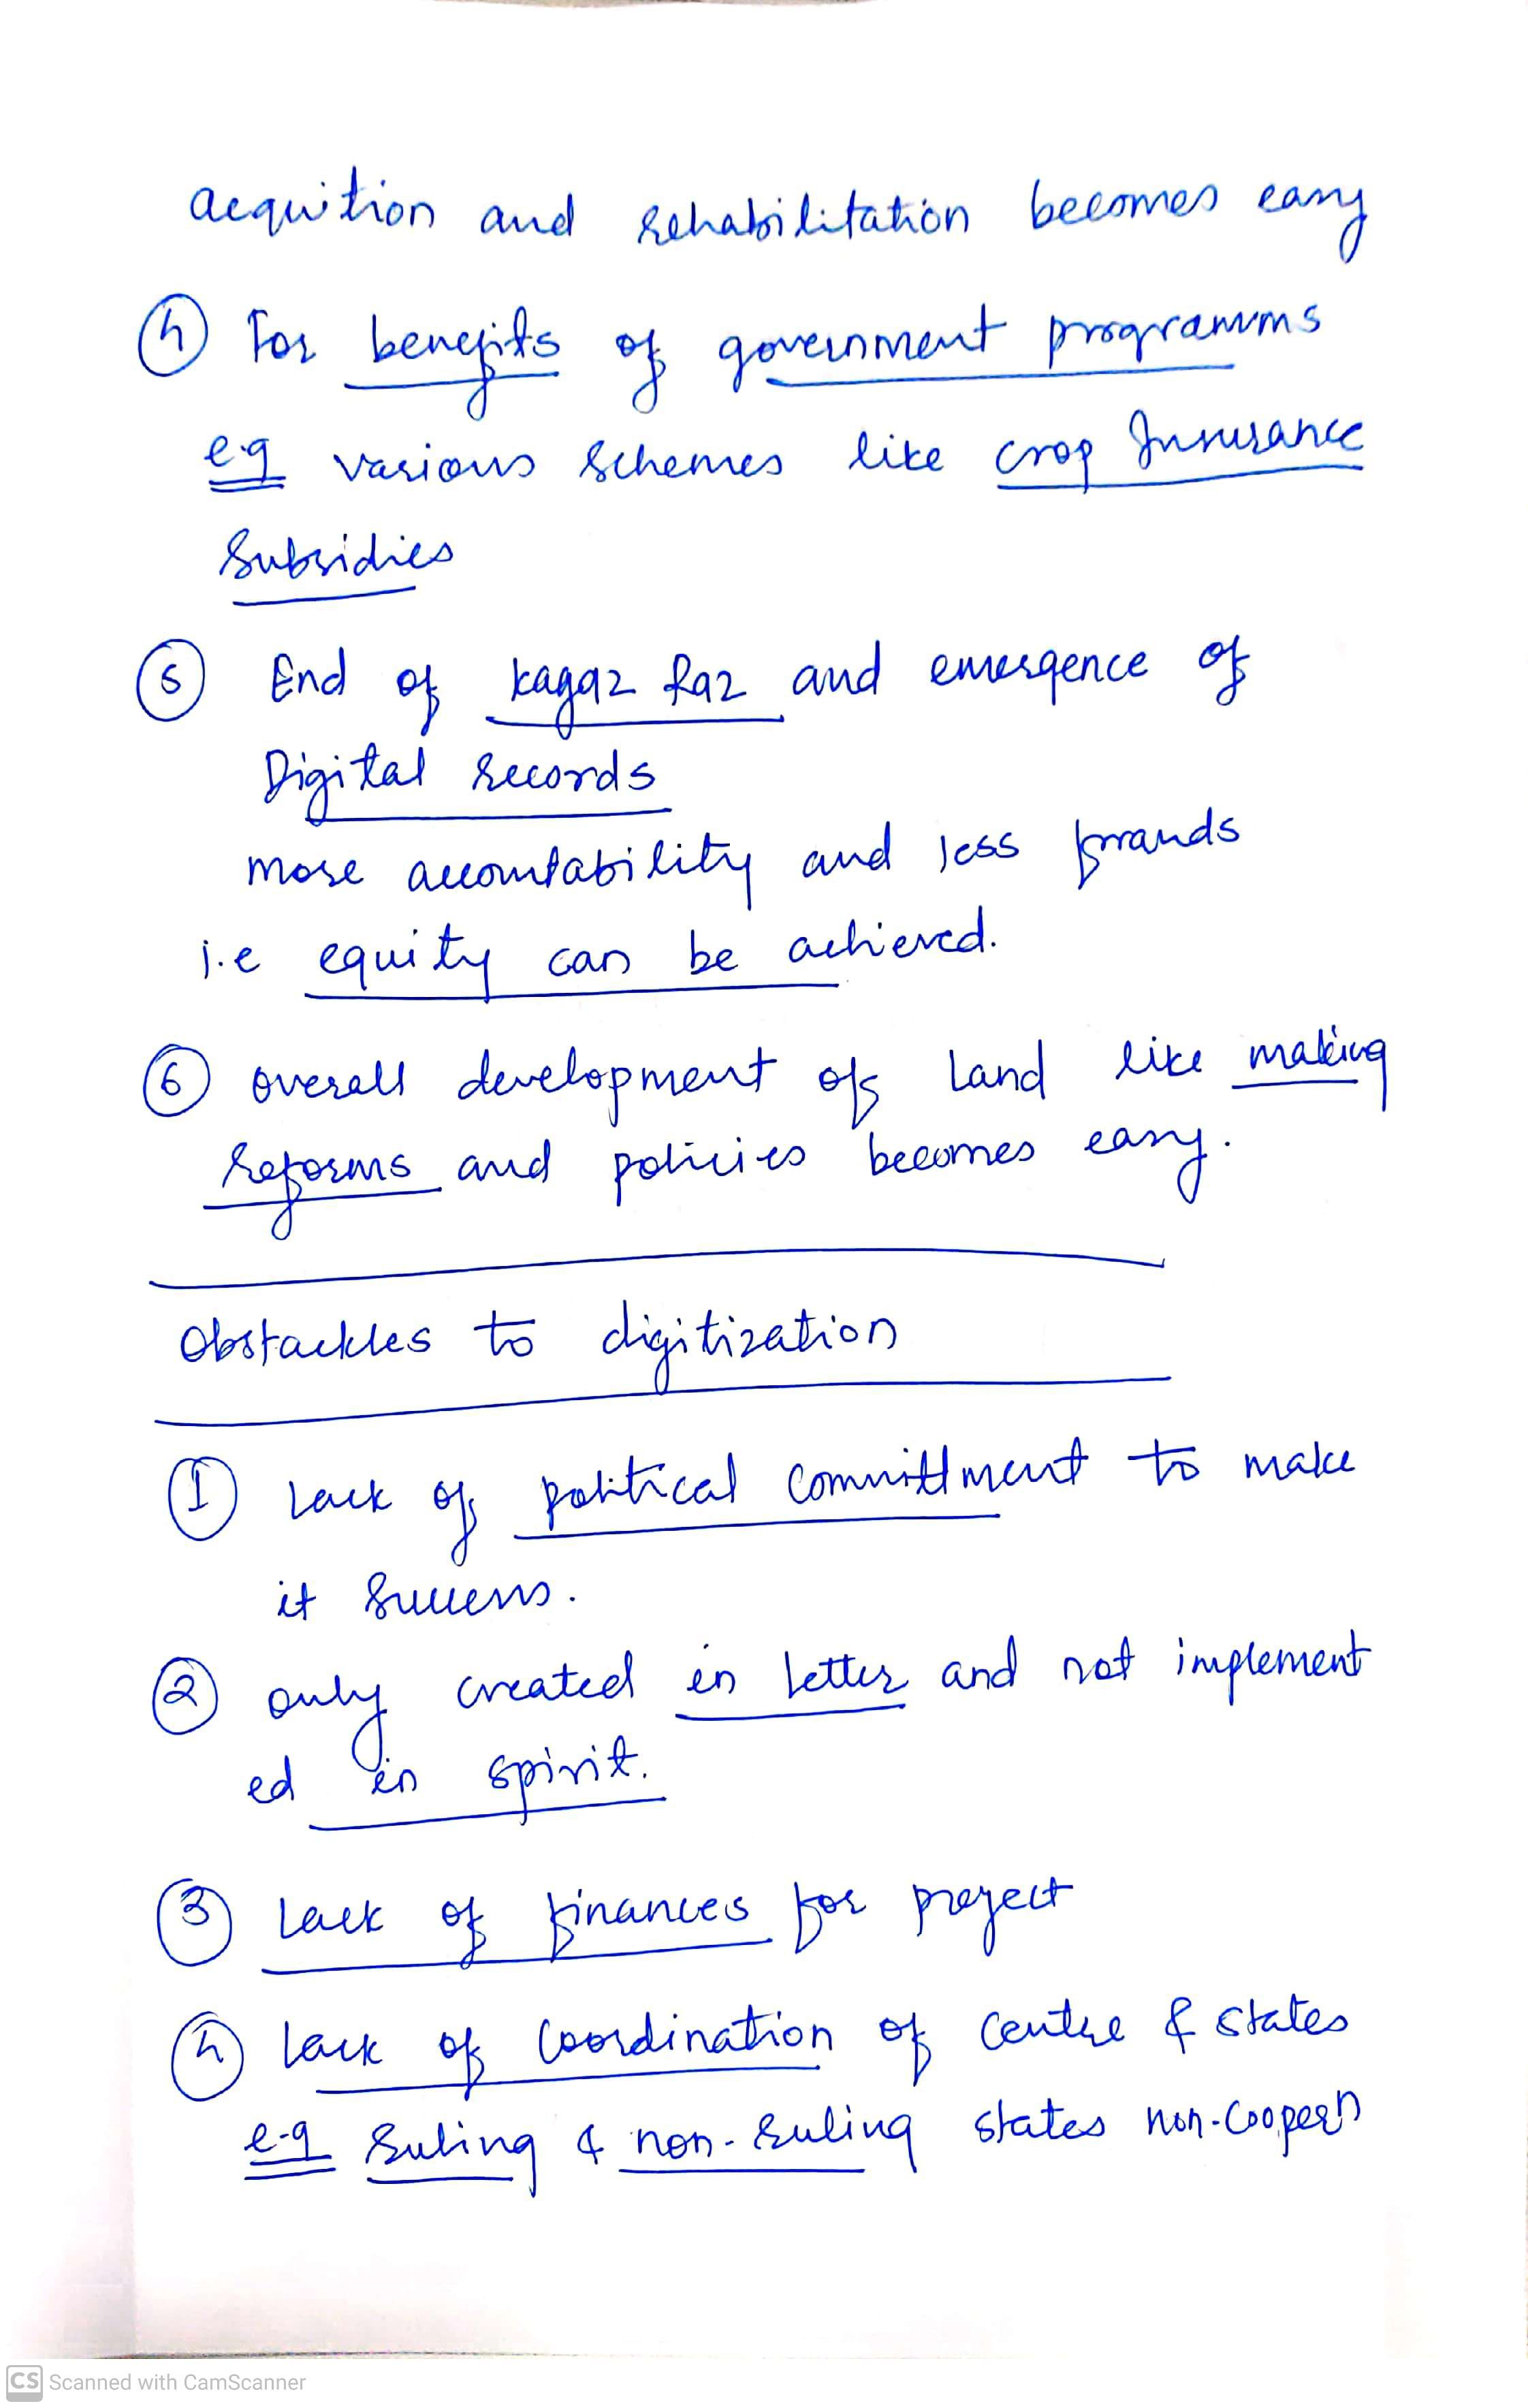 acquition and rehabilitation becomes easy
④ For benefits of government programms
e.g various schemes like crop Insurance
Subsidies
⑤ End of kagaz Raz and emergence of
Digital records
more accountability and less frauds
i.e equity can be achieved.
⑥ overall development of land like making
reforms and policies becomes easy.
Obstackles to digitization
① Lack of political committment to make
it success.
② only created in letter and not implement
ed in spirit.
③ Lack of finances for project
④ lack of coordination of centre & states
e-g ruling & non-ruling states non-coopern
CS Scanned with CamScanner